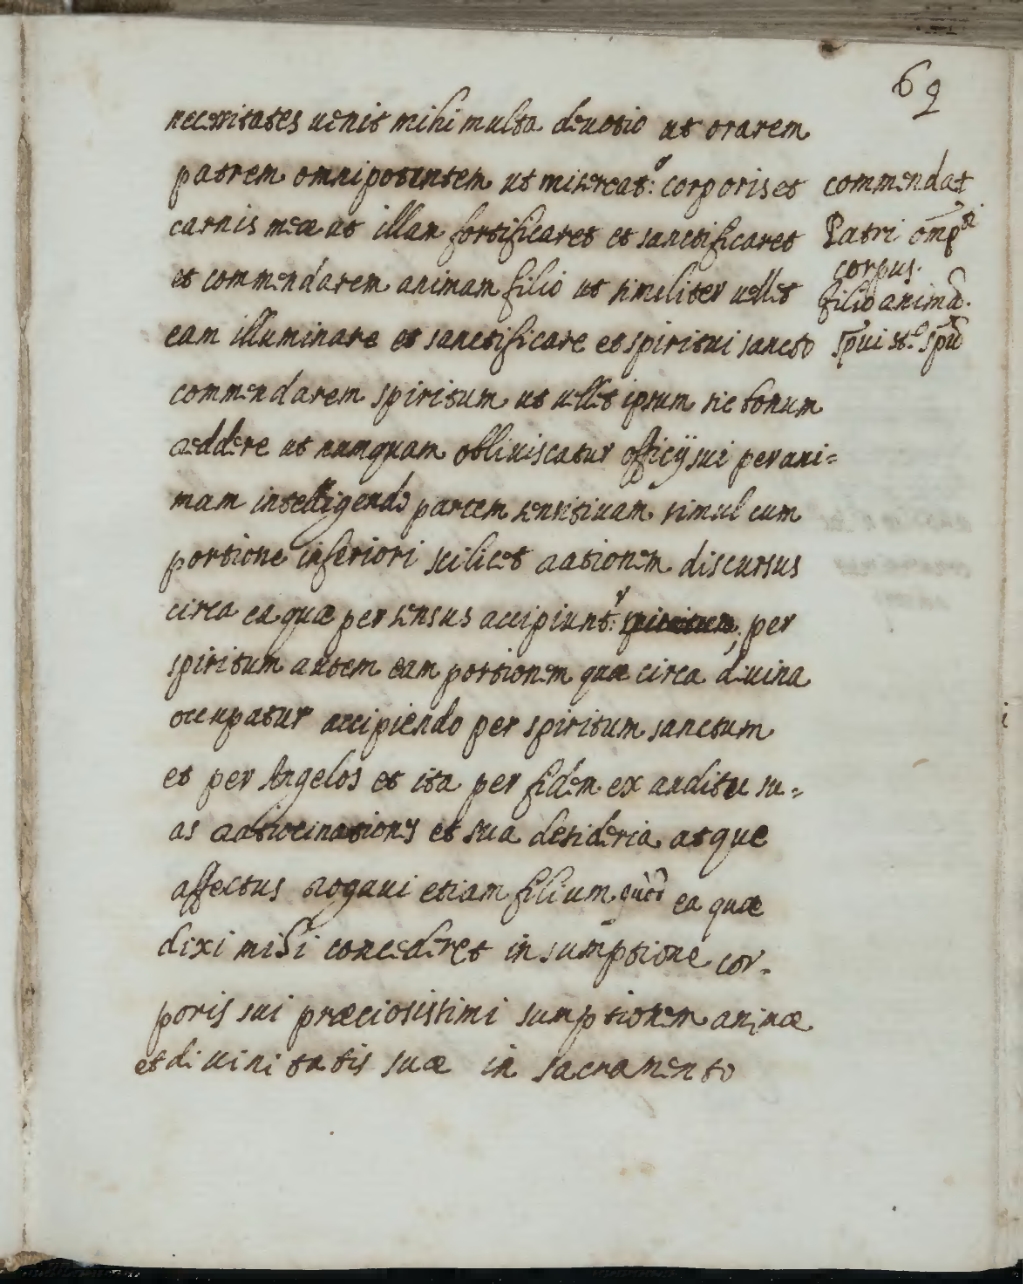 69
necessitates uenit mihi multa deuotio ut orarem
patrem omnipotentem ut misereat:r corporis et
carnis meæ at illam fortificaret et sanctificaret
et commendarem animam filio ut similiter uellet
eam illuminare et sanctificare et spiritui sancto
commendarem spiritum ut uellet ipsum sic bonum
reddere ut numquam obliuiscatur officij sui per ani=
mam intelligendo partem sensitiuam simul cum
portione inferiori scilicet rationem discursus
circa ea quæ per sensus accipiunt:r per
spiritum autem eam portionem quæ circa diuina
occupatur accipiendo per spiritum sanctum
et per Angelos et ita per fidem ex auditu su=
as ratiocinationes et sua desideria atque
affectus rogaui etiam filium quod ea quæ
dixi mihi concederet in sumptione cor-
poris sui præciosissimi sumptionem animæ
et diuinitatis suæ in sacramento
commendat
Patri omp.ti
corpus.
filio animā.
spui st.o spū